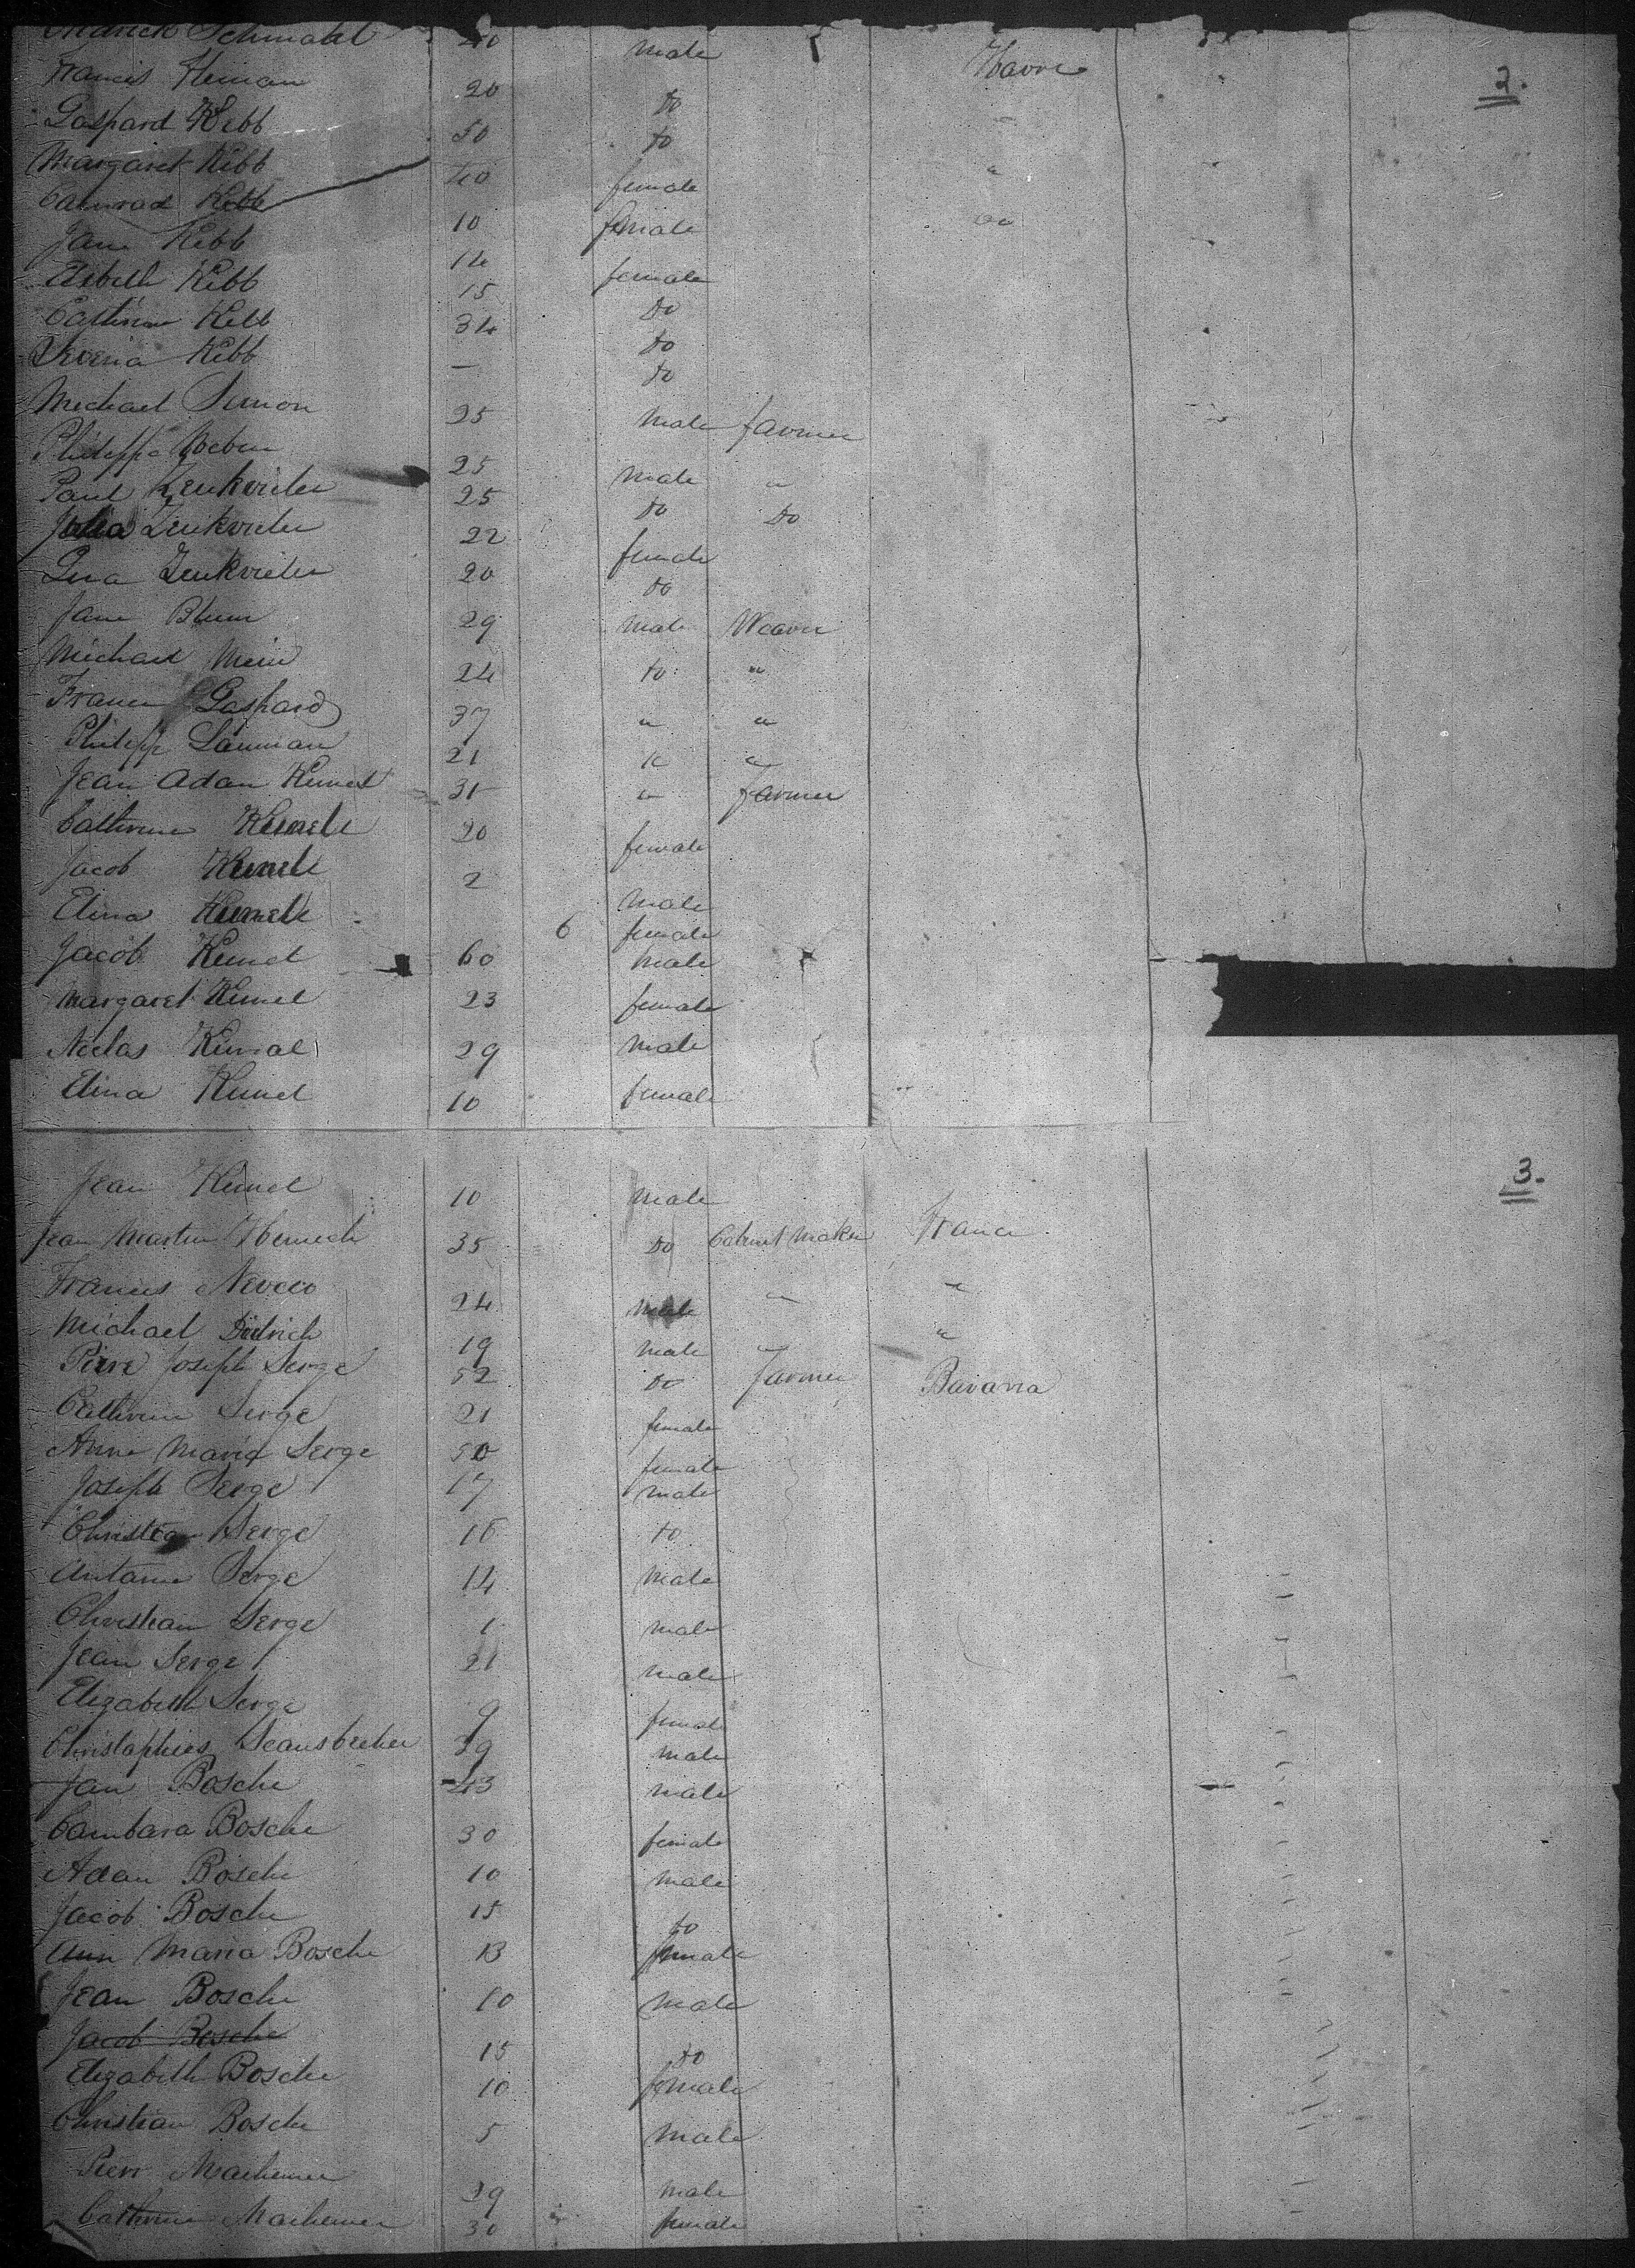 Schmahl 40 male Havre 2.
Francis Heman 20 do
Gaspard Kebb 50 do "
Margaret Kebb 40 female "
Kebb 10 female "
Jane Kebb 14 female
Elsbeth Kebb 15 do
Catherine Kebb 34 do
Kebb — do
Michael Simon 25 male farmer
Philippe Weber 25 male "
Paul Zenkvieler 25 do do
Julia Zenkvieler 22 female
Zenkvieler 20 do
Jane Blum 29 male Weaver
Michael Meier 24 do "
Gaspard 37 " "
Philipp Lauman 21 " "
Jean Adam Kumel 31 " farmer
Catherine Kumel 20 female
Jacob Kumel 2 male
Elina Kumel 6 female
Jacob Kumel 60 male
Margaret Kumel 23 female
Niclas Kumel 29 male
Elina Kumel 10 female
Jean Kumel 10 male 3.
Jean Martin 35 do Cabinet Maker France
Francis 24 male " "
Michael Didrich 19 male " "
Pierre Joseph Serge 52 do farmer Bavaria
Catherine Serge 21 female
Anne Maria Serge 50 female
Joseph Serge 17 male
Christian Serge 16 do
Antanie Serge 14 male
Christian Serge 1 male
Jean Serge 21 male
Elizabeth Serge 9 female
39 male
Jean Bosche 43 male
Bambara Bosche 30 female
Adam Bosche 10 male
Jacob Bosche 15 do
Ann Maria Bosche 13 female
Jean Bosche 10 male
Jacob Bosche 15 do
Elizabeth Bosche 10 female
Christian Bosche 5 male
Pierr Machemer 29 male
Catherine Machemer 30 female